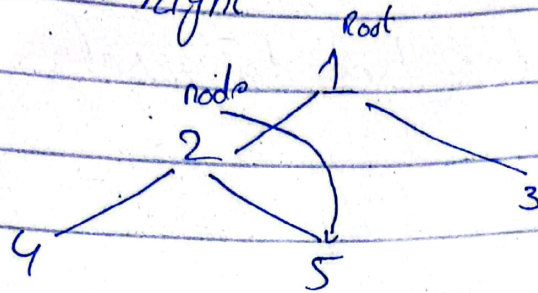 Right
Root
1
node
2
3
4
5